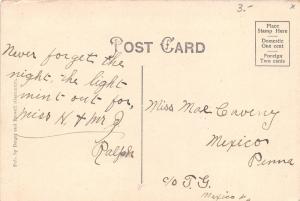 3.-
x
POST CARD
Place
Stamp Here
Domestic
One cent
Foreign
Two cents
Never forget the
night, the light
mint out for,
Miss K & Mr J
Ralph
Miss Mae Caveny
Mexico
Penna
c/o T. G.
Mexico
Pub. by